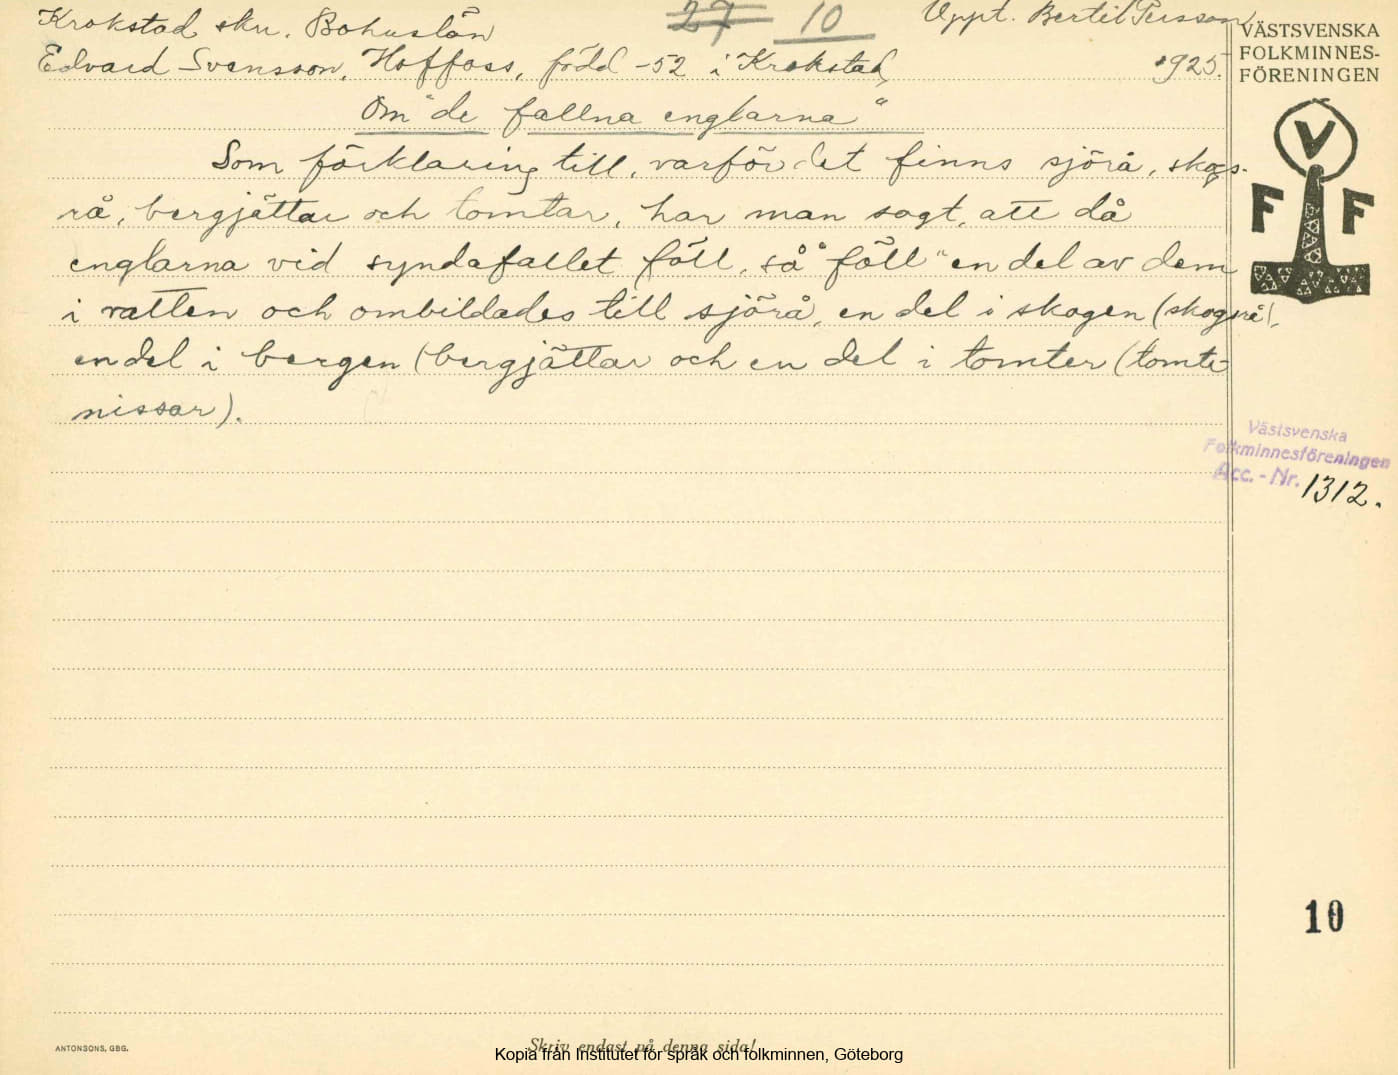 Krokstad skn. Bohuslän
27 10
Uppt. Bertil Persson
Edvard Svensson, Hoffoss, född -52 i Krokstad,
1925.
Om "de fallna englarna"
Som förklaring till, varför det finns sjörå, skogs-
rå, bergjättar och tomtar, har man sagt, att då
englarna vid syndafallet föll, så "föll" en del av dem
i vatten och ombildades till sjörå, en del i skogen (skogsrå),
en del i bergen (bergjättar och en del i tomter (tomte
nissar).
VÄSTSVENSKA
FOLKMINNES-
FÖRENINGEN
V
F F
Västsvenska
Folkminnesföreningen
Acc. - Nr. 1312.
10
ANTONSONS, GBG.
Skriv endast på denna sida!
Kopia från Institutet för språk och folkminnen, Göteborg